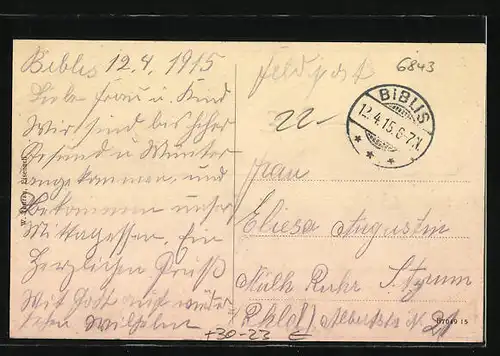 Biblis 12.4.1915
Liebe Frau u. Kind
Wir sind bis hiher
Gesund u Munter
angekommen, und
Bekommen unser
Mittagessen. Ein
Herzlichen Gruß
Mit Gott auf wieder
sehen Wilhelm
Feldpost
6843
22-
BIBLIS
12.4.15.6-7N.
Frau
Eliesa Augustin
Mülh Ruhr Styrum
Rhld
21
+30-23 E